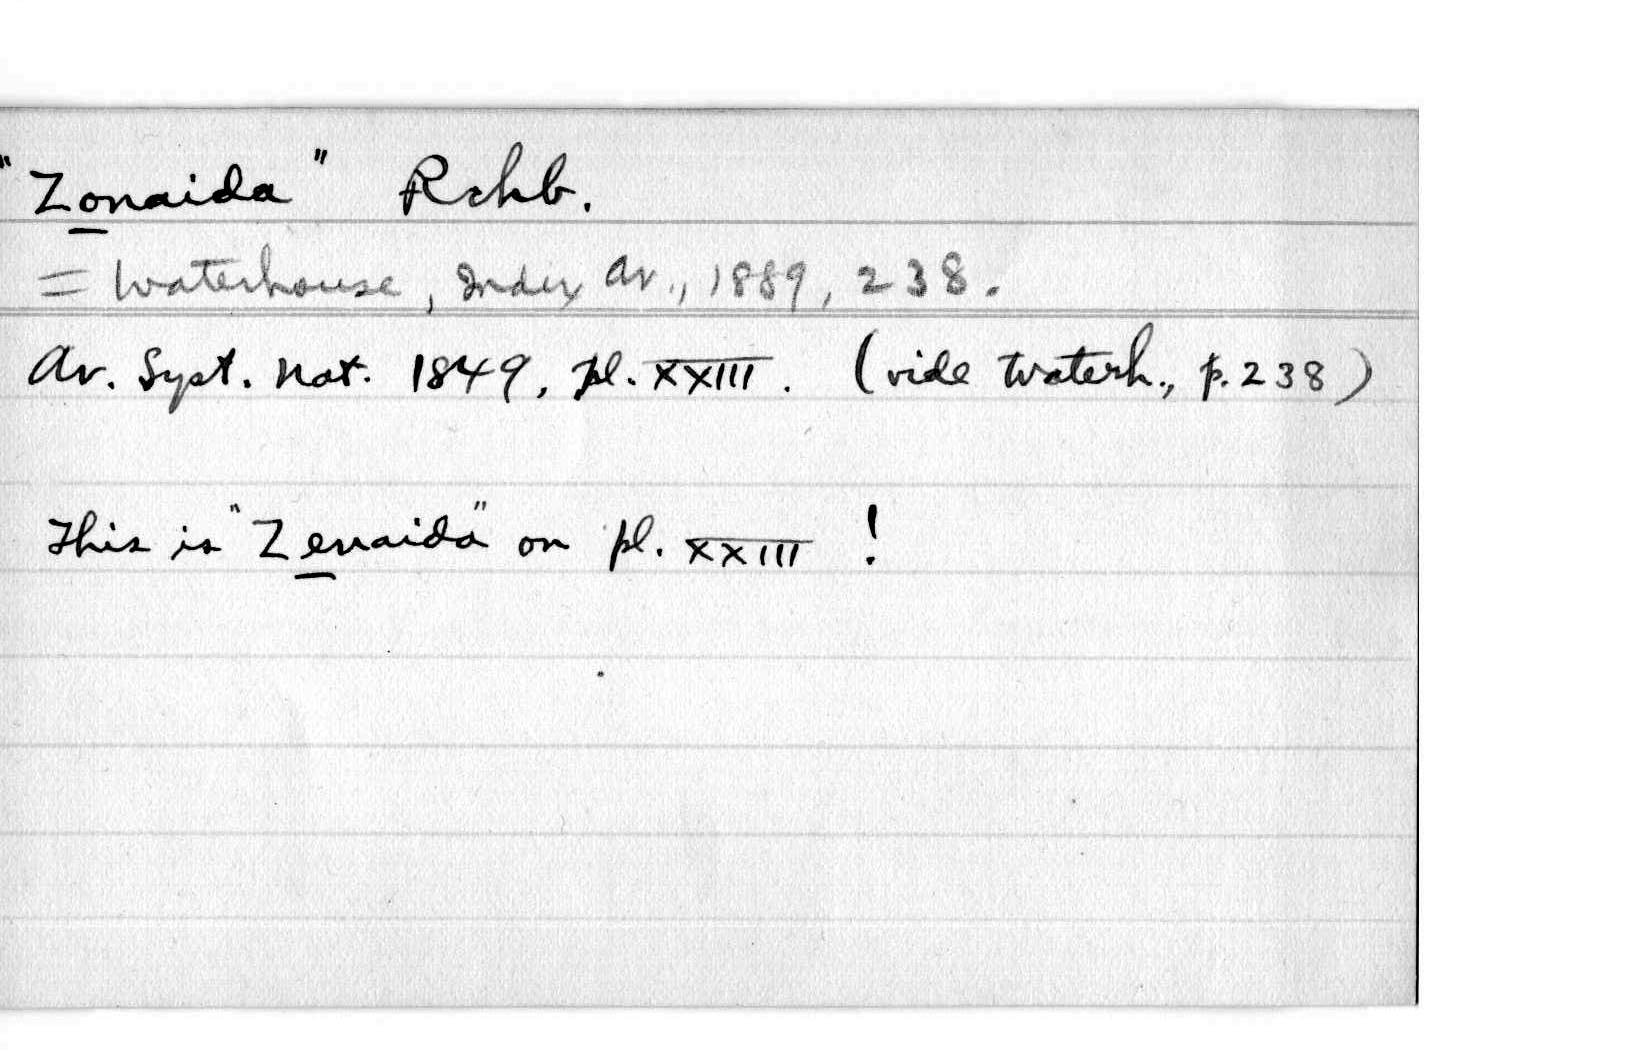 "Zonaida" Rchb.
= Waterhouse, Index Av., 1889, 238.
Av. Syst. Nat. 1849, pl. XXIII. (vide Waterh., p. 238)
This is "Zenaida" on pl. XXIII !